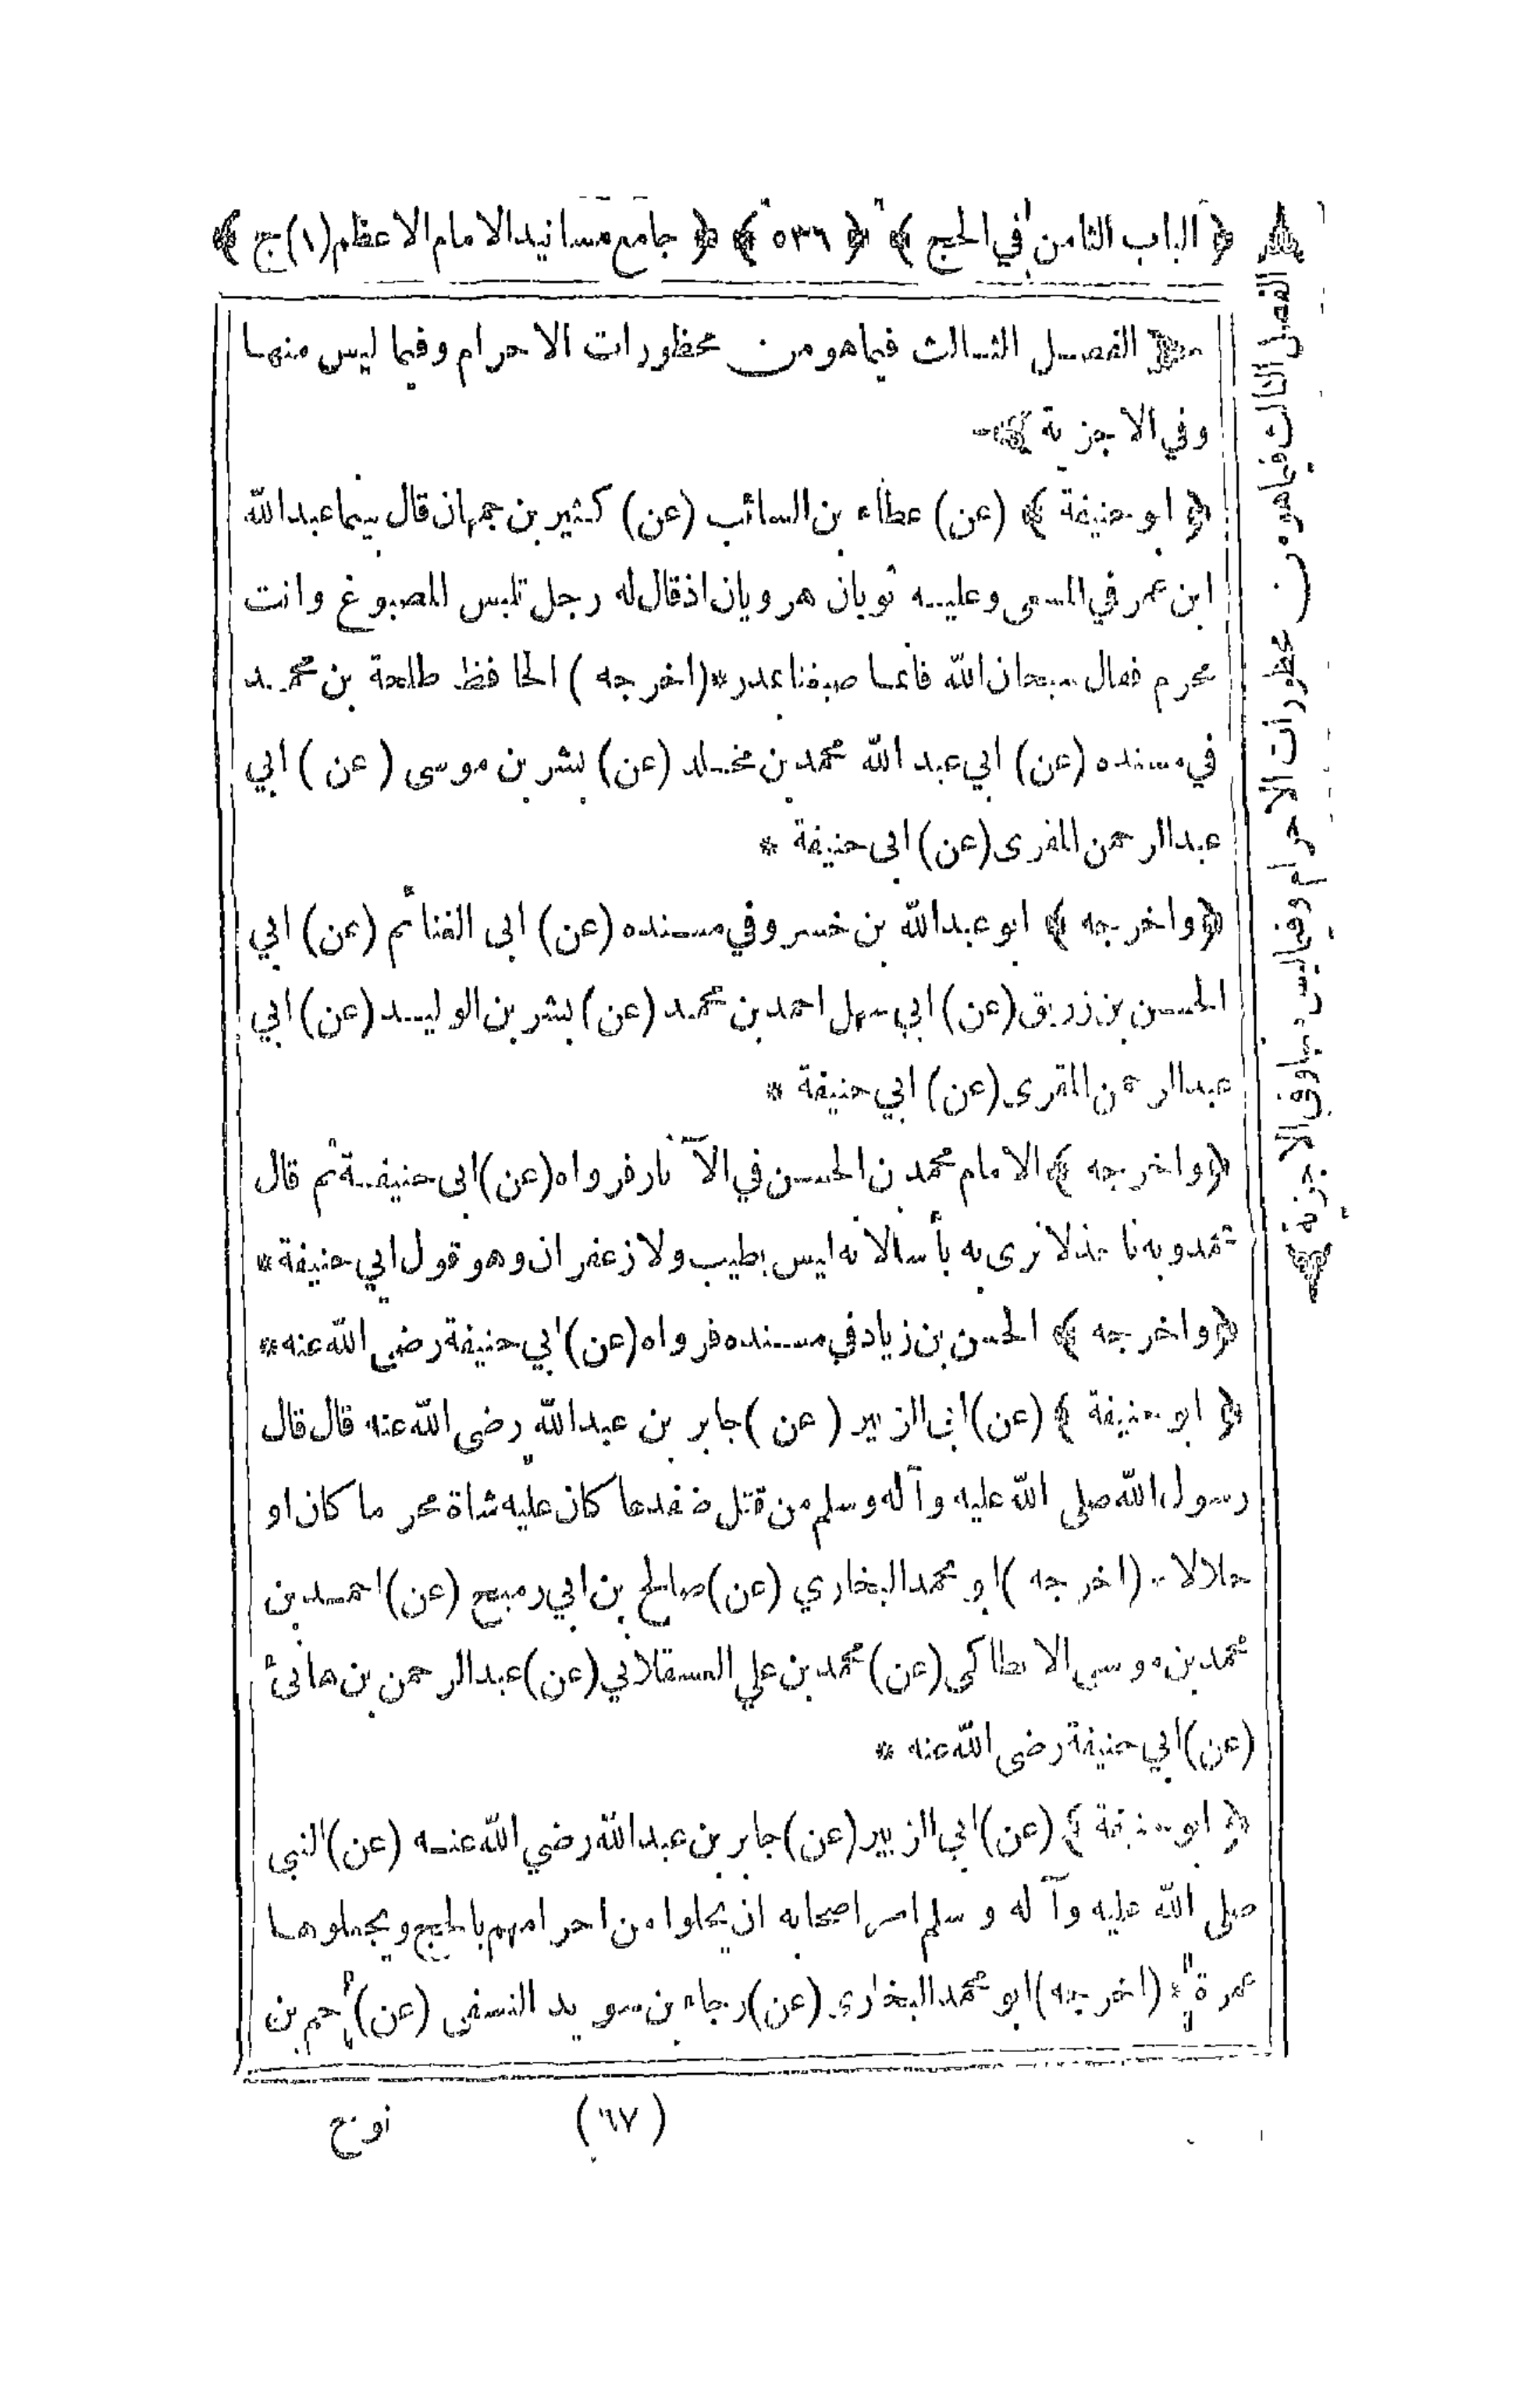 ﴿ الباب الثامن في الحج ﴾ ﴿ ٥٣٦ ﴾ ﴿ جامع مسانيد الامام الاعظم (١) ج ﴾
الفصل الثالث فيما هو من محظورات الاحرام وفيما ليس منها
وفي الاجزية
﴿ ابو حنيفة ﴾ (عن) عطاء بن السائب (عن) كثير بن جمهان قال بينما عبد الله
ابن عمر في المسعى وعليه ثوبان هرويان اذ قال له رجل تلبس المصبوغ وانت
محرم فقال سبحان الله فانما صبغنا بمدر * (اخرجه) الحافظ طلحة بن محمد
في مسنده (عن) ابي عبد الله محمد بن مخلد (عن) بشر بن موسى (عن) ابي
عبد الرحمن المقرى (عن) ابى حنيفة *
﴿ واخرجه ﴾ ابو عبد الله بن خسر وفي مسنده (عن) ابى الغنائم (عن) ابي
الحسن بن زريق (عن) ابي سهل احمد بن محمد (عن) بشر بن الوليد (عن) ابي
عبد الرحمن المقرى (عن) ابي حنيفة *
﴿ واخرجه ﴾ الامام محمد بن الحسن في الآثار فرواه (عن) ابى حنيفة ثم قال
محمد وبه ناخذ لا نرى به بأسا لانه ليس بطيب ولا زعفران وهو قول ابي حنيفة *
﴿ واخرجه ﴾ الحسن بن زياد في مسنده فرواه (عن) ابي حنيفة رضي الله عنه *
﴿ ابو حنيفة ﴾ (عن) ابى الزبير (عن) جابر بن عبد الله رضى الله عنه قال قال
رسول الله صلى الله عليه وآله وسلم من قتل ضفدعا كان عليه شاة محرما كان او
حلالا * (اخرجه) ابو محمد البخاري (عن) صالح بن ابي رميح (عن) احمد بن
محمد بن موسى الانطاكى (عن) محمد بن علي العسقلاني (عن) عبد الرحمن بن هانئ
(عن) ابي حنيفة رضى الله عنه *
﴿ ابو حنيفة ﴾ (عن) ابي الزبير (عن) جابر بن عبد الله رضي الله عنه (عن) النبى
صلى الله عليه وآله وسلم امر اصحابه ان يحلوا من احرامهم بالحج ويجعلوها
عمرة * (اخرجه) ابو محمد البخارى (عن) رجاء بن سويد النسفى (عن) حم بن
(٦٧)
نوح
الفصل الثالث فيما هو من محظورات الاحرام وفيما ليس منها وفي الاجزية